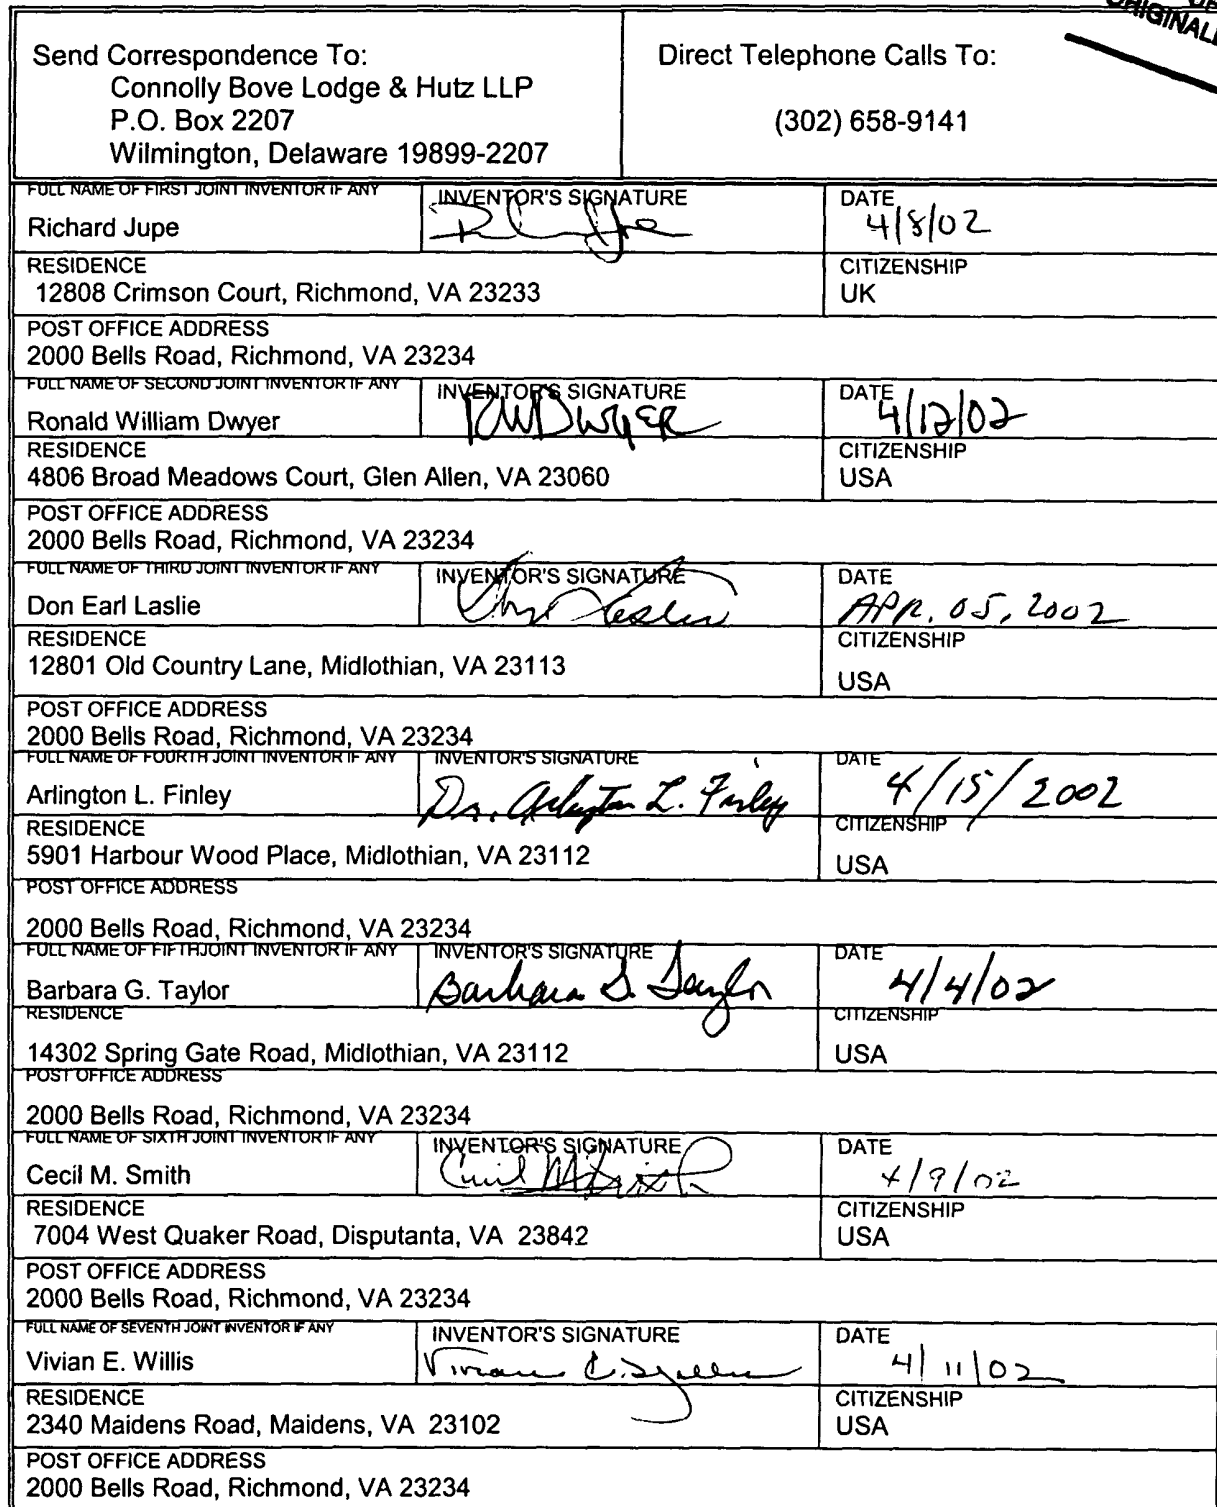 ORIGINAL
Send Correspondence To:
Connolly Bove Lodge & Hutz LLP
P.O. Box 2207
Wilmington, Delaware 19899-2207
Direct Telephone Calls To:
(302) 658-9141
FULL NAME OF FIRST JOINT INVENTOR IF ANY
Richard Jupe
INVENTOR'S SIGNATURE
DATE
4/8/02
RESIDENCE
12808 Crimson Court, Richmond, VA 23233
CITIZENSHIP
UK
POST OFFICE ADDRESS
2000 Bells Road, Richmond, VA 23234
FULL NAME OF SECOND JOINT INVENTOR IF ANY
Ronald William Dwyer
INVENTOR'S SIGNATURE
RW DWYER
DATE
4/12/02
RESIDENCE
4806 Broad Meadows Court, Glen Allen, VA 23060
CITIZENSHIP
USA
POST OFFICE ADDRESS
2000 Bells Road, Richmond, VA 23234
FULL NAME OF THIRD JOINT INVENTOR IF ANY
Don Earl Laslie
INVENTOR'S SIGNATURE
DATE
APR. 05, 2002
RESIDENCE
12801 Old Country Lane, Midlothian, VA 23113
CITIZENSHIP
USA
POST OFFICE ADDRESS
2000 Bells Road, Richmond, VA 23234
FULL NAME OF FOURTH JOINT INVENTOR IF ANY
Arlington L. Finley
INVENTOR'S SIGNATURE
Dr. Arlington L. Finley
DATE
4/15/2002
RESIDENCE
5901 Harbour Wood Place, Midlothian, VA 23112
CITIZENSHIP
USA
POST OFFICE ADDRESS
2000 Bells Road, Richmond, VA 23234
FULL NAME OF FIFTHJOINT INVENTOR IF ANY
Barbara G. Taylor
INVENTOR'S SIGNATURE
Barbara G. Taylor
DATE
4/4/02
RESIDENCE
14302 Spring Gate Road, Midlothian, VA 23112
CITIZENSHIP
USA
POST OFFICE ADDRESS
2000 Bells Road, Richmond, VA 23234
FULL NAME OF SIXTH JOINT INVENTOR IF ANY
Cecil M. Smith
INVENTOR'S SIGNATURE
Cecil M Smith
DATE
4/9/02
RESIDENCE
7004 West Quaker Road, Disputanta, VA 23842
CITIZENSHIP
USA
POST OFFICE ADDRESS
2000 Bells Road, Richmond, VA 23234
FULL NAME OF SEVENTH JOINT INVENTOR IF ANY
Vivian E. Willis
INVENTOR'S SIGNATURE
Vivian E. Willis
DATE
4/11/02
RESIDENCE
2340 Maidens Road, Maidens, VA 23102
CITIZENSHIP
USA
POST OFFICE ADDRESS
2000 Bells Road, Richmond, VA 23234